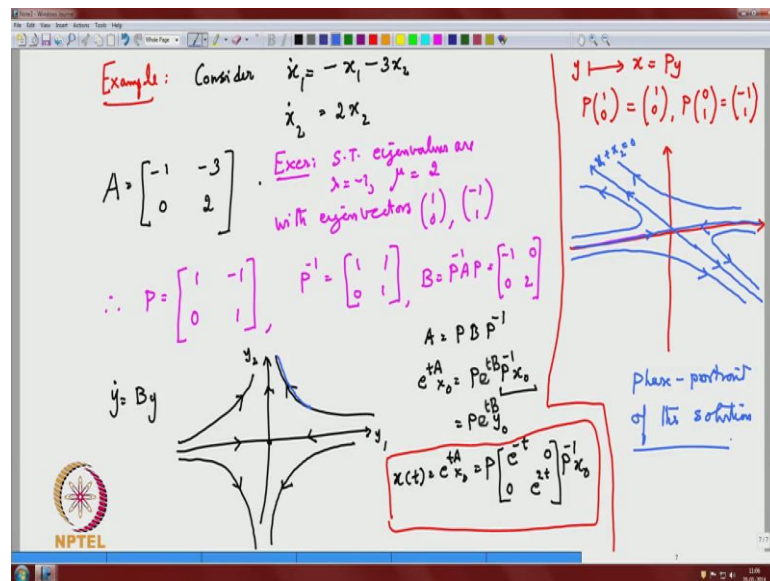 Note1 - Windows Journal
File Edit View Insert Actions Tools Help
Whole Page
Example: Consider ẋ₁ = -x₁ - 3x₂
ẋ₂ = 2x₂
A = [-1 -3
0 2].
Exer: S.T. eigenvalues are
λ=-1, μ = 2
with eigenvectors (1 0), (-1 1)
∴ P = [1 -1
0 1],
P⁻¹ = [1 1
0 1], B = P⁻¹AP = [-1 0
0 2]
A = P B P⁻¹
e^{tA}x₀ = Pe^{tB}P⁻¹x₀
= Pe^{tB}y₀
x(t) = e^{tA}x₀ = P[e^{-t} 0
0 e^{2t}]P⁻¹x₀
ẏ = By
y₂
y₁
y ↦ x = Py
P(1 0) = (1 0), P(0 1) = (-1 1)
x₁+x₂=0
phase-portrait
of the solution
NPTEL
7/7
7
11:06